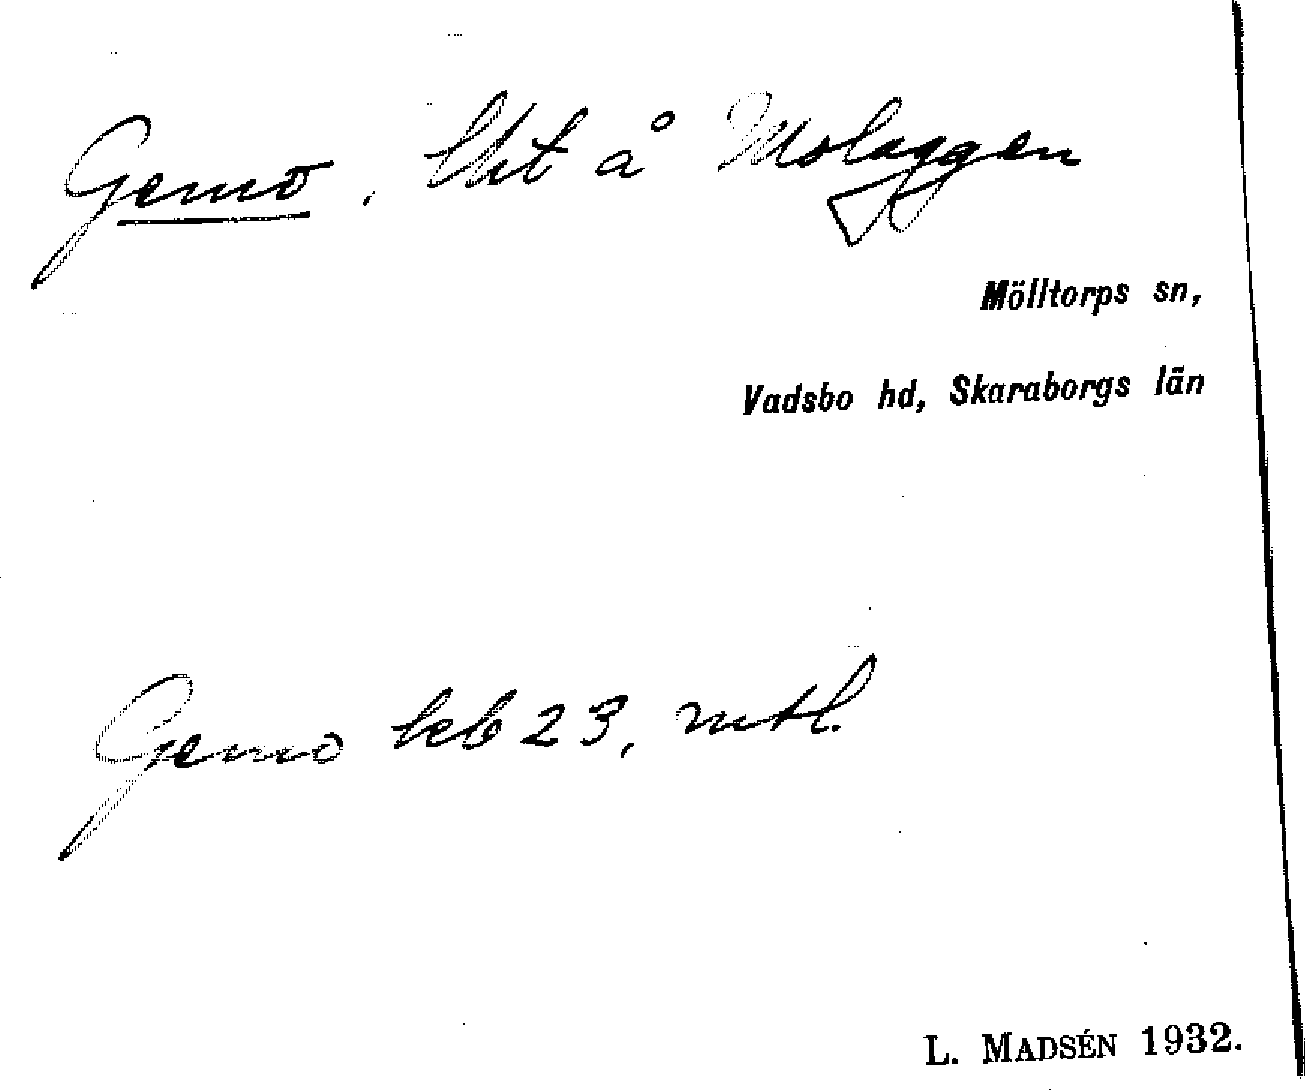 Gemo, lht å Molaggen
Mölltorps sn,
Vadsbo hd, Skaraborgs län
Gemo kb 23, mtl.
L. MADSÉN 1932.